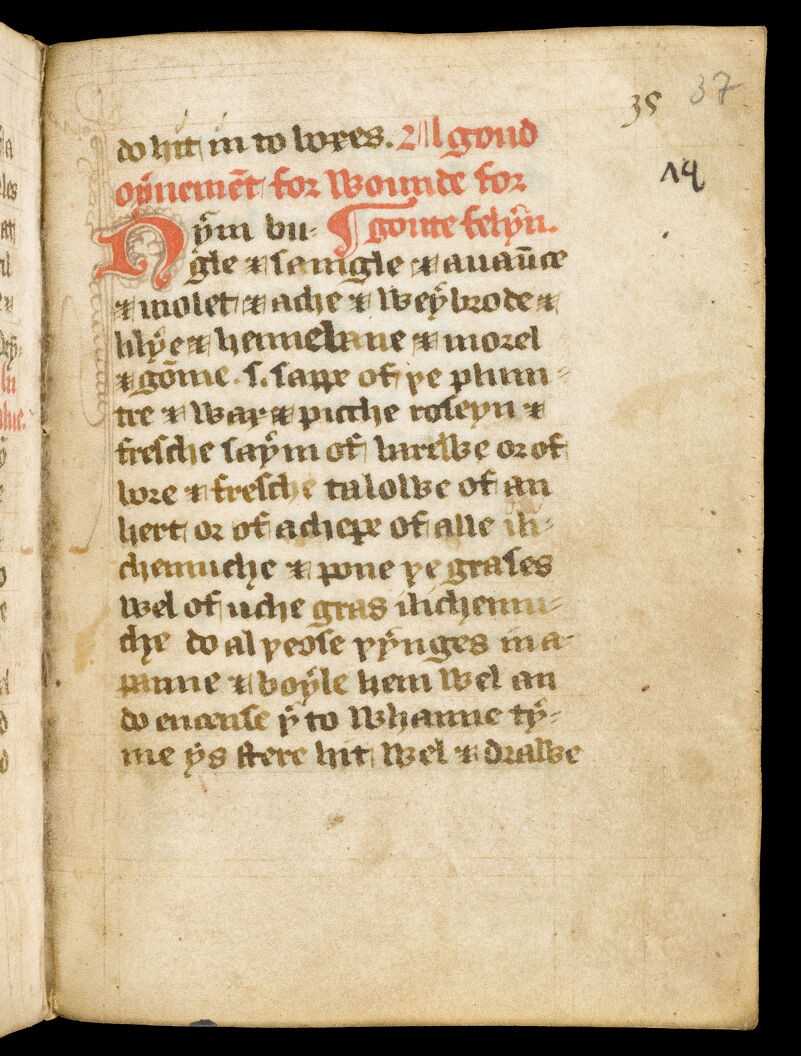 35 37
14
do hit in to boxes. A goud
oẏnemēt for wounde for
Nẏm bu-
goute felẏn.
gle & sanigle & auaūce
& uiolet & ache & weẏbrode &
lilẏe & hennebane & morel
& gōme .s. sape of þe plum-
tre & wax & picche roseyn &
fresche saẏm of barowe or of
bore & fresche talowe of an
hert or of a chepe of alle ili-
chemuche & pone þe grases
wel of uche gras ilichemu-
che do al þeose þẏnges in a
panne & boẏle hem wel an
do encense ẏ to whanne tẏ-
me ẏs stere hit wel & drawe